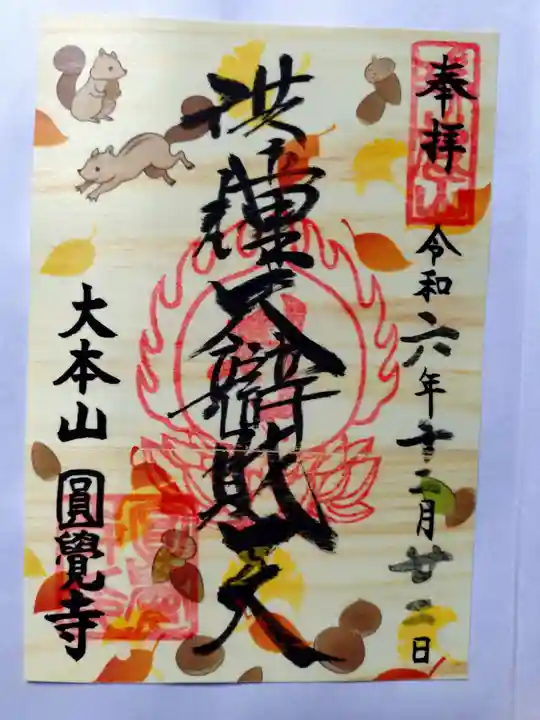 奉拝
令和六年十二月廿二日
洪鐘大辯財天
大本山圓覺寺